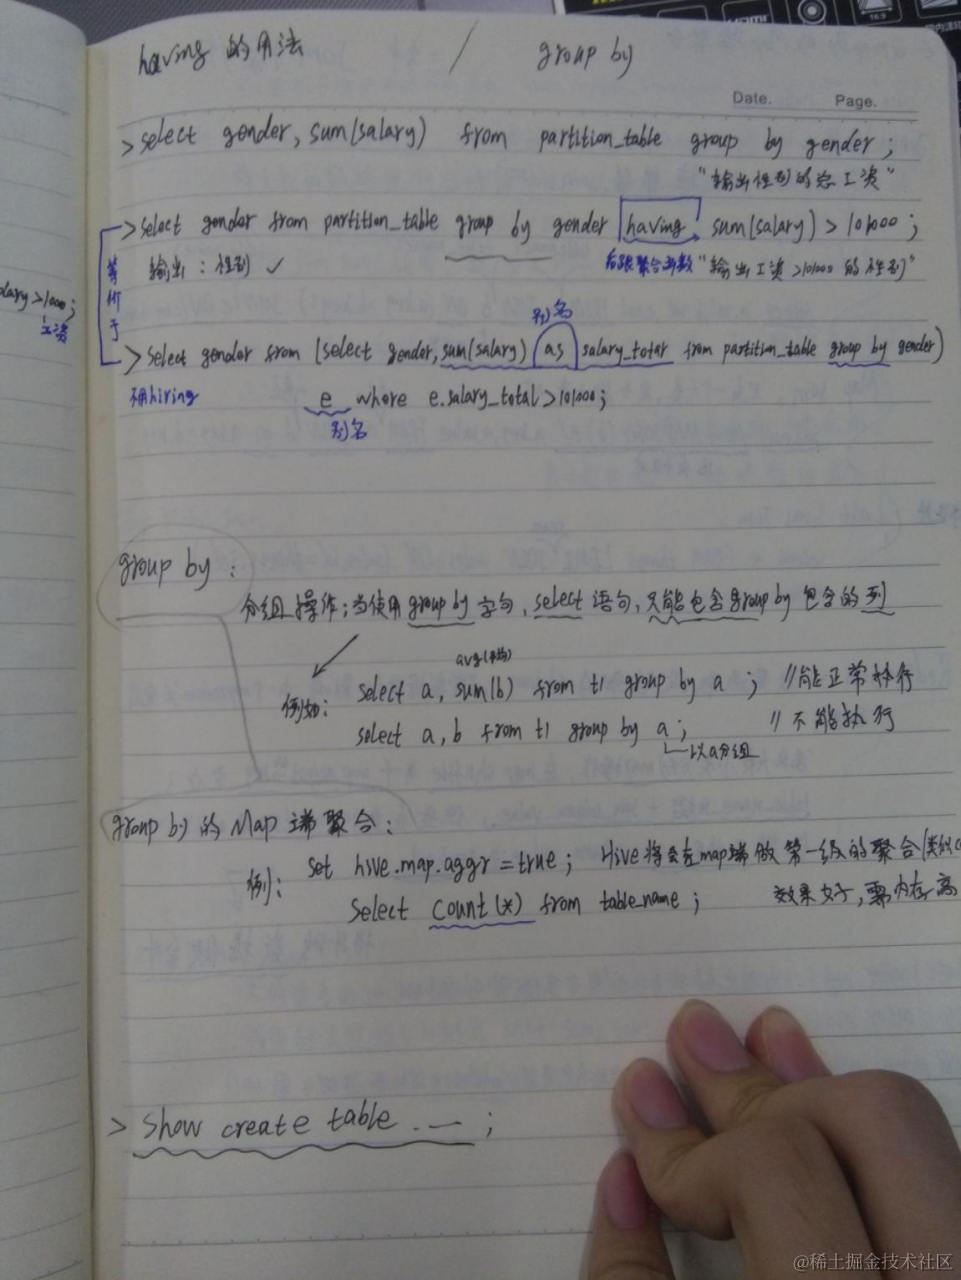 having 的用法 / group by
Date. Page.
> select gender, sum(salary) from partition_table group by gender ;
"输出性别的总工资"
> select gender from partition_table group by gender having sum(salary) > 101000 ;
输出：性别 ✓ 后跟聚合函数 "输出工资>101000 的性别"
等价于
alary>1000;
工资
别名
> select gender from (select gender, sum(salary) as salary_total from partition_table group by gender)
不用hiring e where e.salary_total > 101000 ;
别名
group by :
分组操作；当使用group by 字句，select 语句，只能包含group by 包含的列
avg(平均)
例如： select a, sum(b) from t1 group by a ; //能正常执行
select a, b from t1 group by a ; //不能执行
以a分组
group by 的 Map 端聚合：
例： set hive.map.aggr = true ; Hive将会在map端做第一级的聚合(类似c
select count(*) from table_name ; 效果好，需内存高
> show create table .... ;
@稀土掘金技术社区